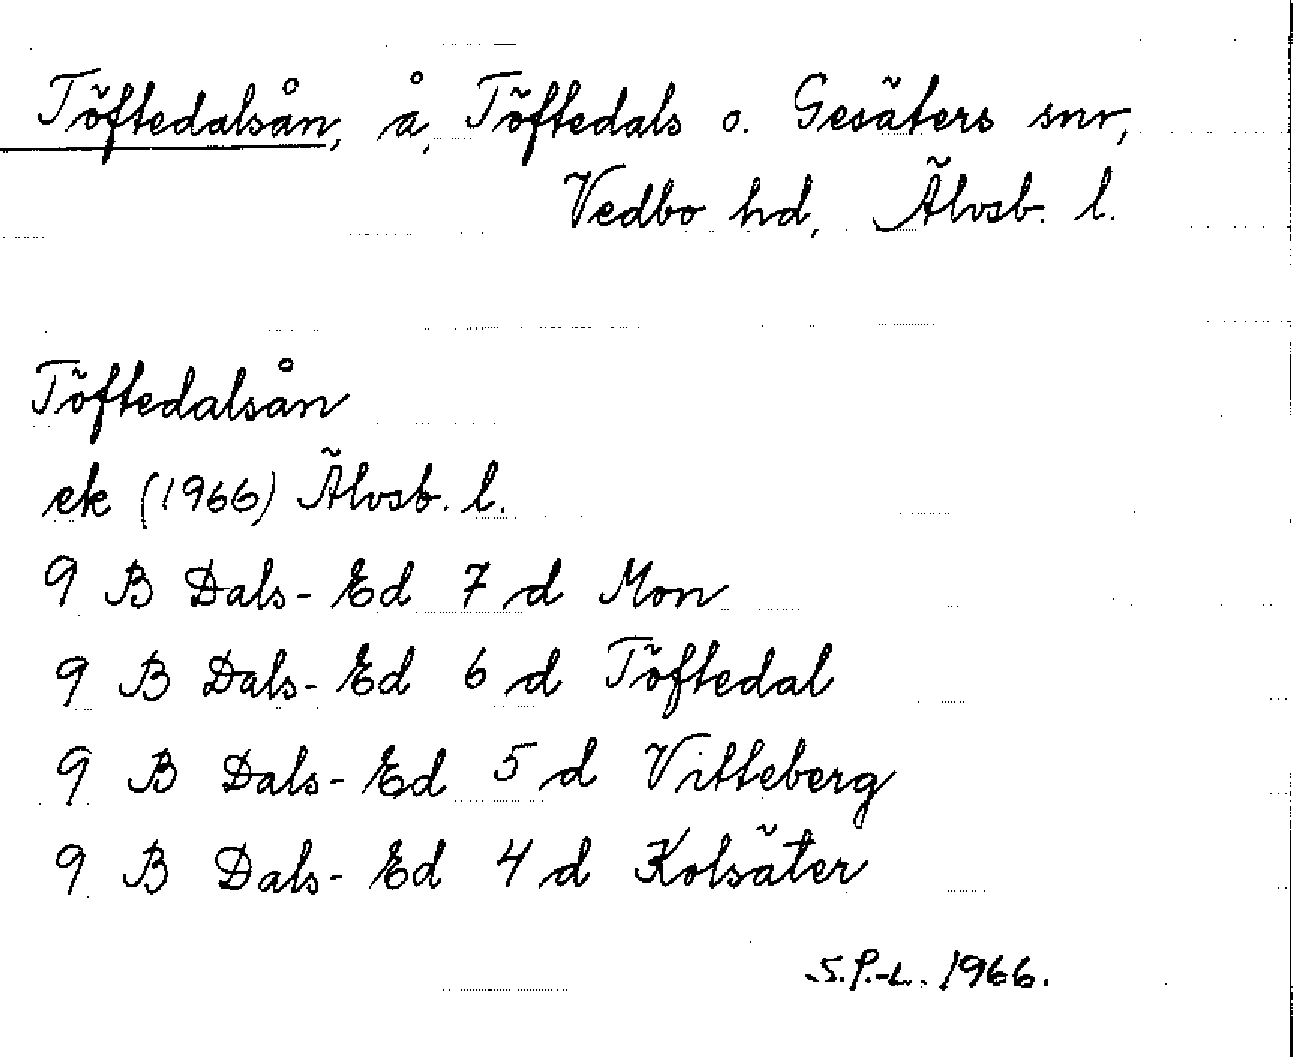 Töftedalsån, å, Töftedals o. Gesäters snr,
Vedbo hd, Älvsb. l.
Töftedalsån
ek (1966) Älvsb. l.
9 B Dals-Ed 7 d Mon
9 B Dals-Ed 6 d Töftedal
9 B Dals-Ed 5 d Vitteberg
9 B Dals-Ed 4 d Kolsäter
S.P.-L. 1966.